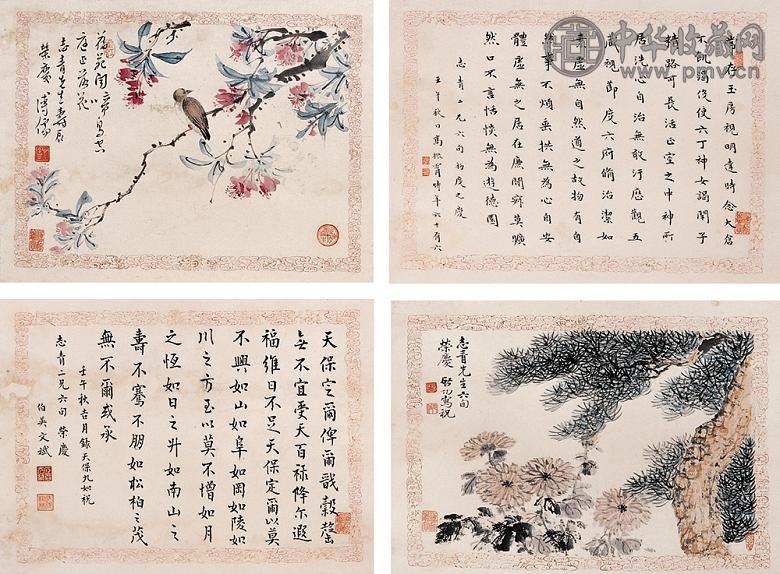 落花
志青先生壽辰
榮慶 溥儒
中华收藏网
常存玉房視明達時念大倉
不飢渴役使六丁神女謁閉子
精路可長活正室之中神所
居洗心自治無敢汙歷觀五
藏視節度六府脩治潔如
素虛無自然道之故物有自
然事不煩垂拱無為心自安
體虛無之居在廉間寂莫曠
然口不言恬惔無為遊德園
志青二兄六旬初度之慶
天保定爾俾爾戩穀罄
無不宜受天百祿降尔遐
福維日不足天保定爾以莫
不興如山如阜如岡如陵如
川之方至以莫不增如月
之恆如日之升如南山之
壽不騫不朋如松柏之茂
無不爾或承
壬午秋吉月錄天保九如祝
志青二兄六旬榮慶
伯英文斌
志青先生六旬
榮慶 啟功寫祝